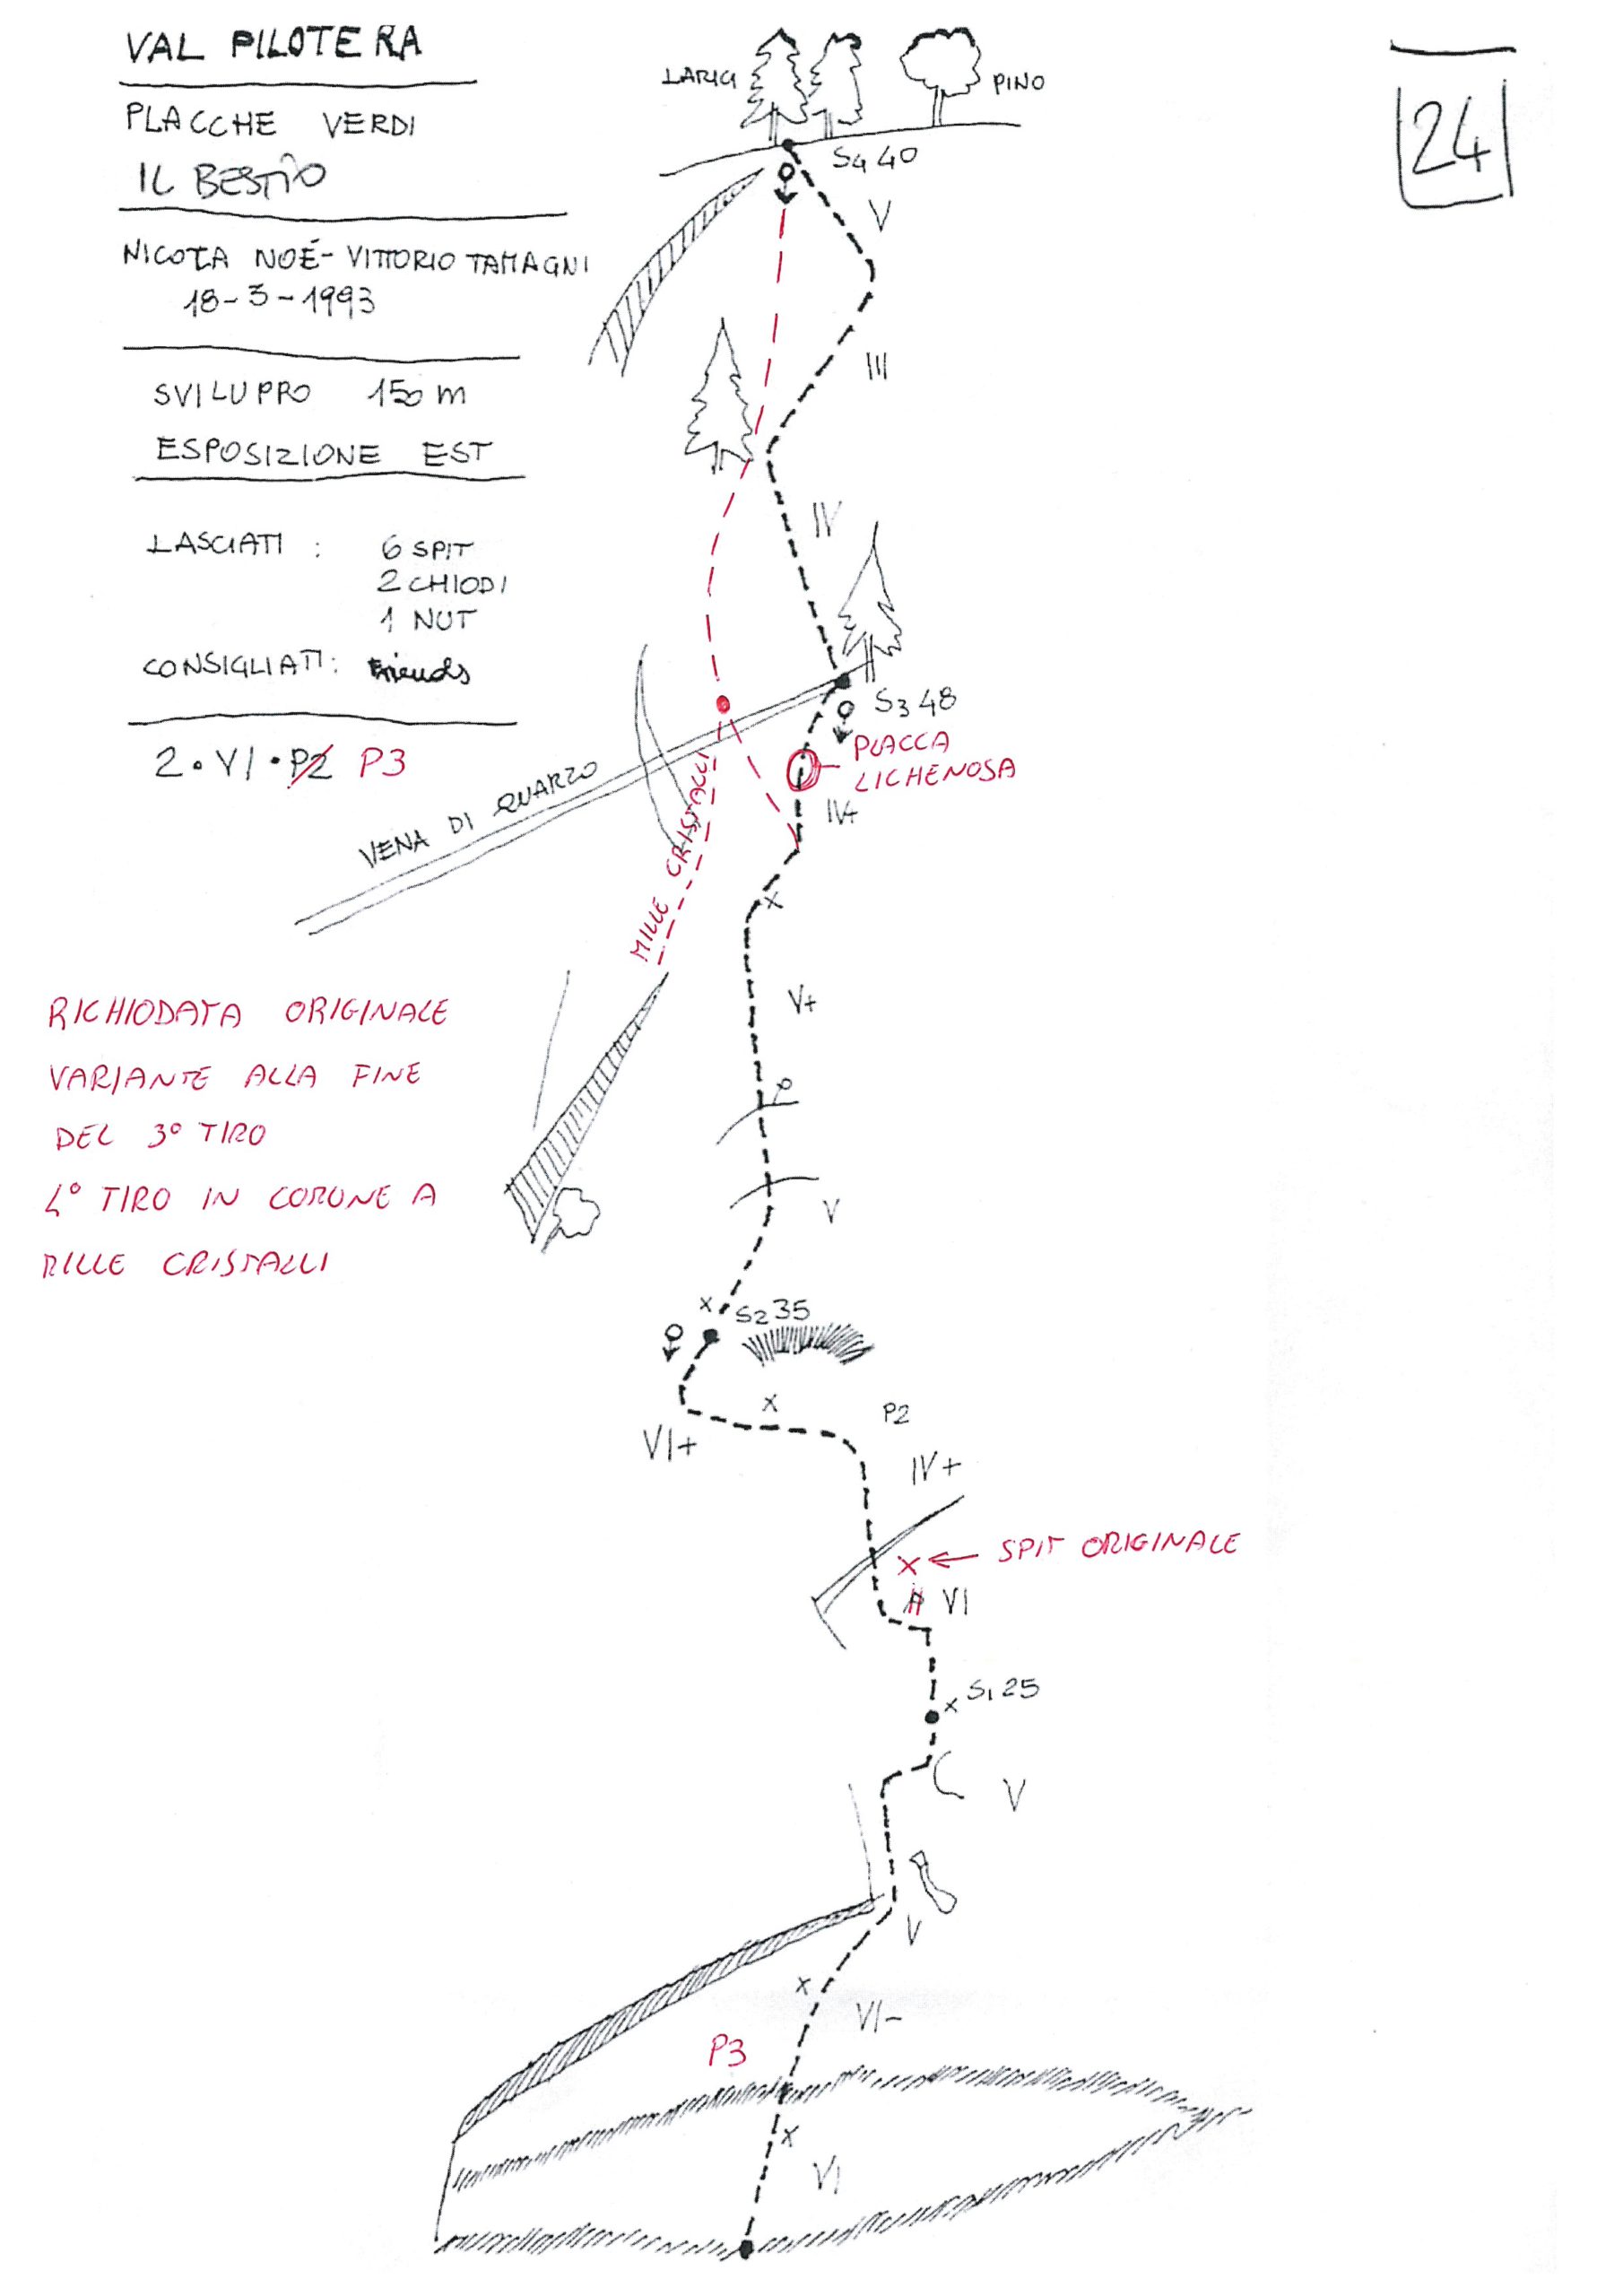 VAL PILOTERA
LARICI
PINO
24
PLACCHE VERDI
IL BESTIO
S4 40
V
NICOLA NOÉ - VITTORIO TAMAGNI
18-3-1993
III
SVILUPPO 150 m
ESPOSIZIONE EST
IV
LASCIATI : 6 SPIT
2 CHIODI
1 NUT
CONSIGLIATI: Friends
S3 48
2 • VI • P2 P3
PLACCA
LICHENOSA
VENA DI QUARZO
IV+
MILLE CRISTALLI
V+
RICHIODATA ORIGINALE
VARIANTE ALLA FINE
DEL 3° TIRO
4° TIRO IN COMUNE A
MILLE CRISTALLI
V
x S2 35
x
P2
VI+
IV+
x ← SPIT ORIGINALE
VI
x S1 25
V
V
x
VI-
P3
x
VI